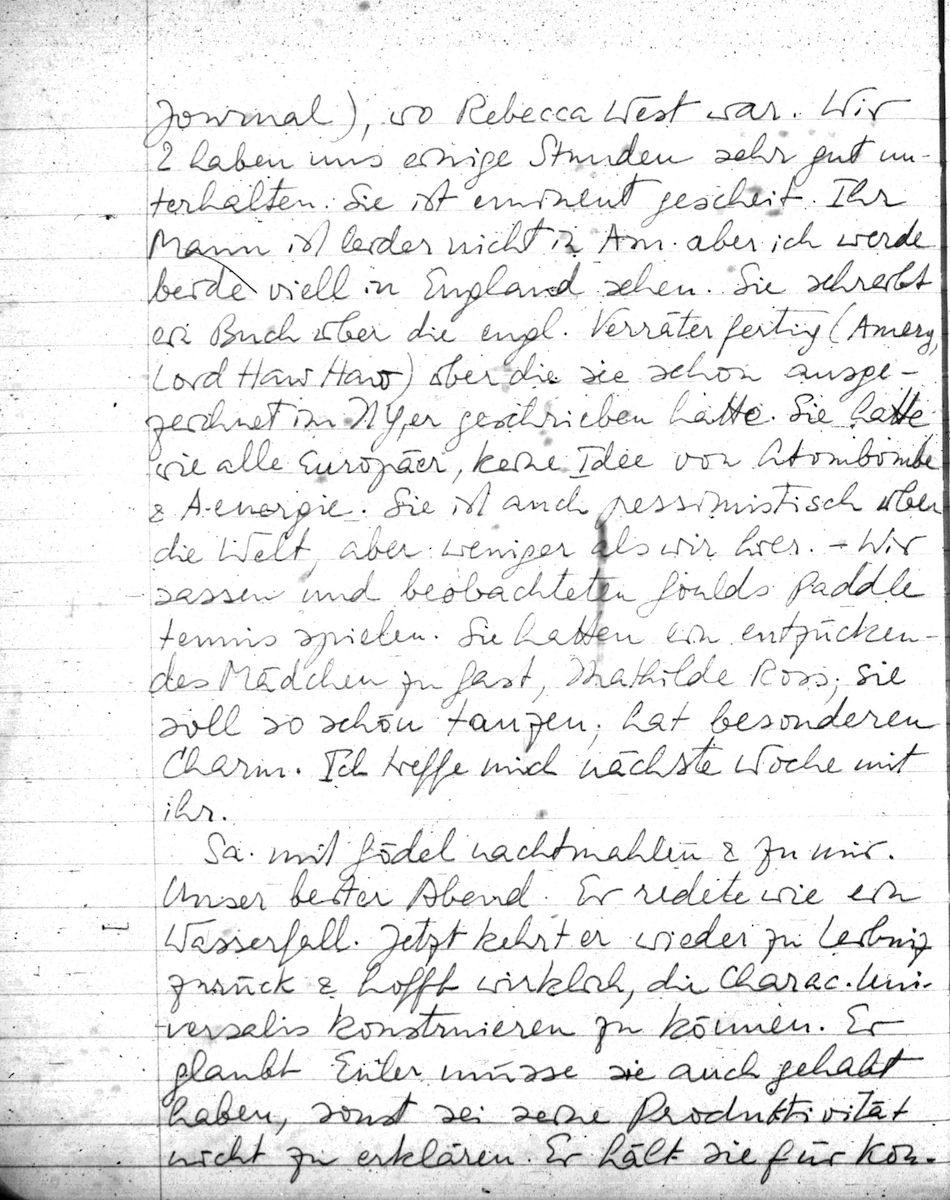 Journal), wo Rebecca West war. Wir
2 haben uns einige Stunden sehr gut un-
terhalten. Sie ist eminent gescheit. Ihr
Mann ist leider nicht in Am. aber ich werde
beide viell in England sehen. Sie schreibt
ein Buch über die engl. Verräter fertig (Amery,
Lord Haw Haw) über die sie schon ausge-
zeichnet im NYer geschrieben hatte. Sie hatte
wie alle Europäer, keine Idee von Atombombe
& A-energie. Sie ist auch pessimistisch über
die Welt, aber weniger als wir hier. – Wir
sassen und beobachteten Goulds Paddle
tennis spielen. Sie hatten ein entzücken-
des Mädchen zu Gast, Mathilde Ross; sie
soll so schön tanzen; hat besonderen
Charm. Ich treffe mich nächste Woche mit
ihr.
Sa. mit Gödel nachtmahlen & zu mir.
Unser bester Abend. Er redete wie ein
Wasserfall. Jetzt kehrt er wieder zu Leibniz
zurück & hofft wirklich, die Charac. Uni-
versalis konstruieren zu können. Er
glaubt Euler müsse sie auch gehabt
haben, sonst sei seine Produktivität
nicht zu erklären. Er hält sie für kon-